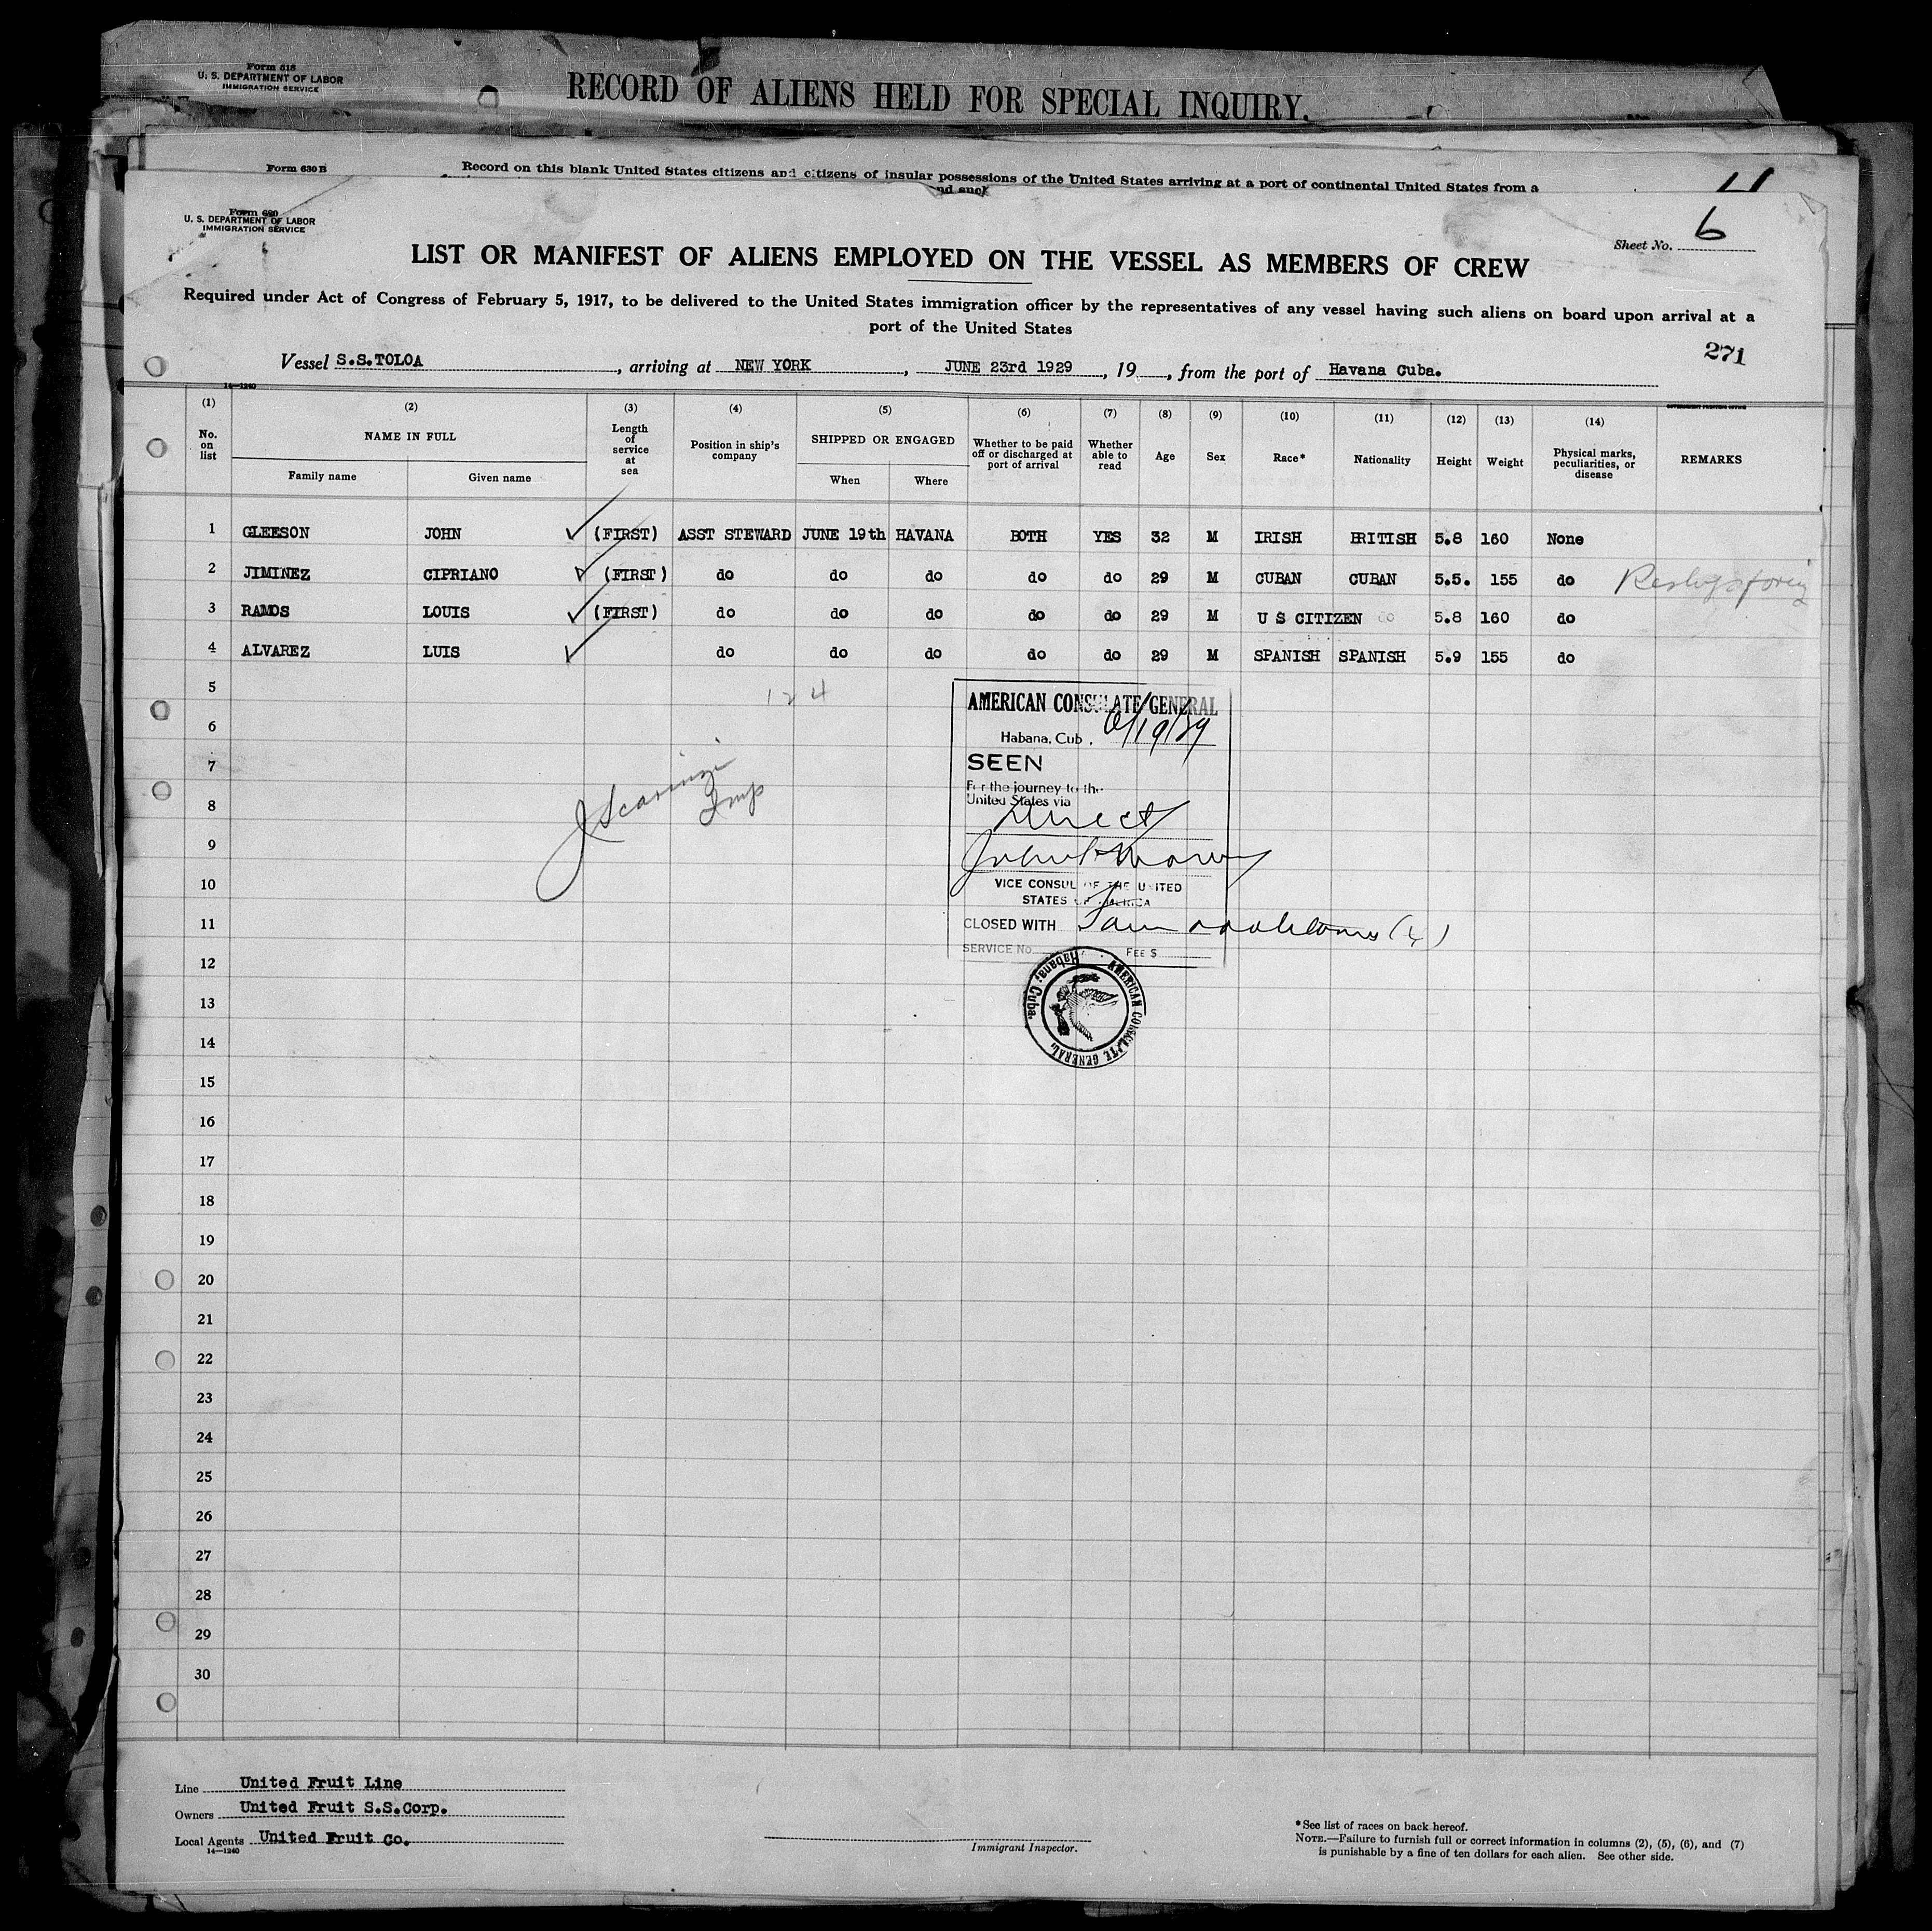 Form 518
U. S. DEPARTMENT OF LABOR
IMMIGRATION SERVICE
RECORD OF ALIENS HELD FOR SPECIAL INQUIRY.
Form 630 B
Record on this blank United States citizens and citizens of insular possessions of the United States arriving at a port of continental United States from a
Form 680
U. S. DEPARTMENT OF LABOR
IMMIGRATION SERVICE
Sheet No. 6
LIST OR MANIFEST OF ALIENS EMPLOYED ON THE VESSEL AS MEMBERS OF CREW
Required under Act of Congress of February 5, 1917, to be delivered to the United States immigration officer by the representatives of any vessel having such aliens on board upon arrival at a
port of the United States
271
Vessel S.S.TOLOA, arriving at NEW YORK, JUNE 23rd 1929, 19, from the port of Havana Cuba.
14—1240
(1) (2) (3) (4) (5) (6) (7) (8) (9) (10) (11) (12) (13) (14)
No. on list NAME IN FULL Length of service at sea Position in ship's company SHIPPED OR ENGAGED Whether to be paid off or discharged at port of arrival Whether able to read Age Sex Race* Nationality Height Weight Physical marks, peculiarities, or disease REMARKS
Family name Given name When Where
1 GLEESON JOHN (FIRST) ASST STEWARD JUNE 19th HAVANA BOTH YES 32 M IRISH BRITISH 5.8 160 None
2 JIMINEZ CIPRIANO (FIRST) do do do do do 29 M CUBAN CUBAN 5.5. 155 do
3 RAMOS LOUIS (FIRST) do do do do do 29 M U S CITIZEN do 5.8 160 do
4 ALVAREZ LUIS do do do do do 29 M SPANISH SPANISH 5.9 155 do
5
124
AMERICAN CONSULATE GENERAL
6
Habana, Cub. 6/19/29
7
SEEN
For the journey to the
United States via
8
Direct
9
10
VICE CONSUL OF THE UNITED
STATES OF AMERICA
11
CLOSED WITH
SERVICE No. FEE $
12
AMERICAN CONSULATE GENERAL, Habana, Cuba.
13
14
15
16
17
18
19
20
21
22
23
24
25
26
27
28
29
30
Line United Fruit Line
Owners United Fruit S.S.Corp.
Local Agents United Fruit Co.
14—1240
Immigrant Inspector.
*See list of races on back hereof.
NOTE.—Failure to furnish full or correct information in columns (2), (5), (6), and (7)
is punishable by a fine of ten dollars for each alien. See other side.